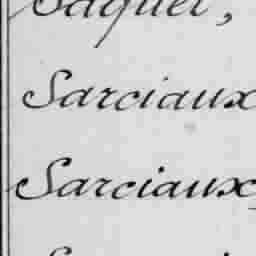 Jaquet,
Sarciaux
Sarciaux